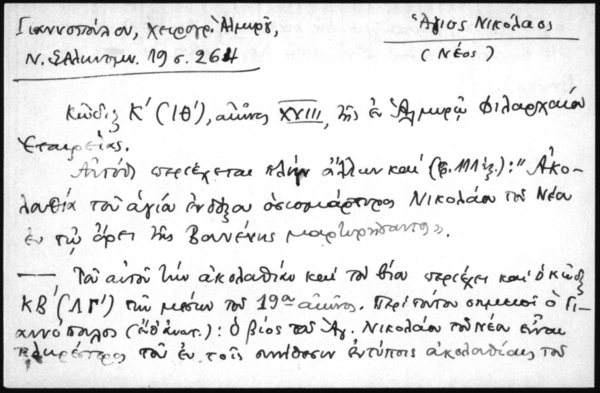 Γιαννοπούλου, Χειρογρ. Ἁλμυροῦ,
Ν. Ἑλληνομν. 19 σ. 264
Ἅγιος Νικόλαος
(Νέος)
Κῶδιξ Κ´ (ΙΘ´), αἰῶνος XVIII, τῆς ἐν Ἁλμυρῷ Φιλαρχαίου
Ἑταιρείας.
Αὐτόθι περιέχεται πλὴν ἄλλων καὶ : "Ἀκο-
λουθία τοῦ ἁγίου ἐνδόξου ὁσιομάρτυρος Νικολάου τοῦ Νέου
ἐν τῷ ὄρει τῆς Βουνένης μαρτυρήσαντος».
— Τὴν αὐτὴν ἀκολουθίαν καὶ τὸν βίον περιέχει καὶ ὁ κῶδιξ
ΚΒ´ (ΛΓ´) τῶν μέσων τοῦ 19ου αἰῶνος. Περὶ τούτου σημειοῖ ὁ Γι-
αννόπουλος (ἔνθ' ἀνωτ.): ὁ βίος τοῦ Ἁγ. Νικολάου τοῦ νέου εἶναι
πληρέστερος τοῦ ἐν τοῖς συνήθεσιν ἐντύποις ἀκολουθίαις τοῦ